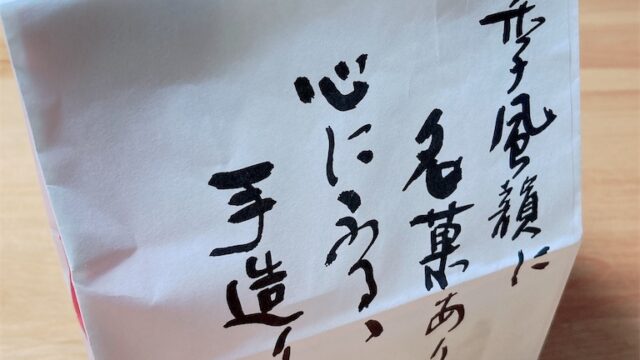 季風韻に
名菓あり
心にふる、
手造り